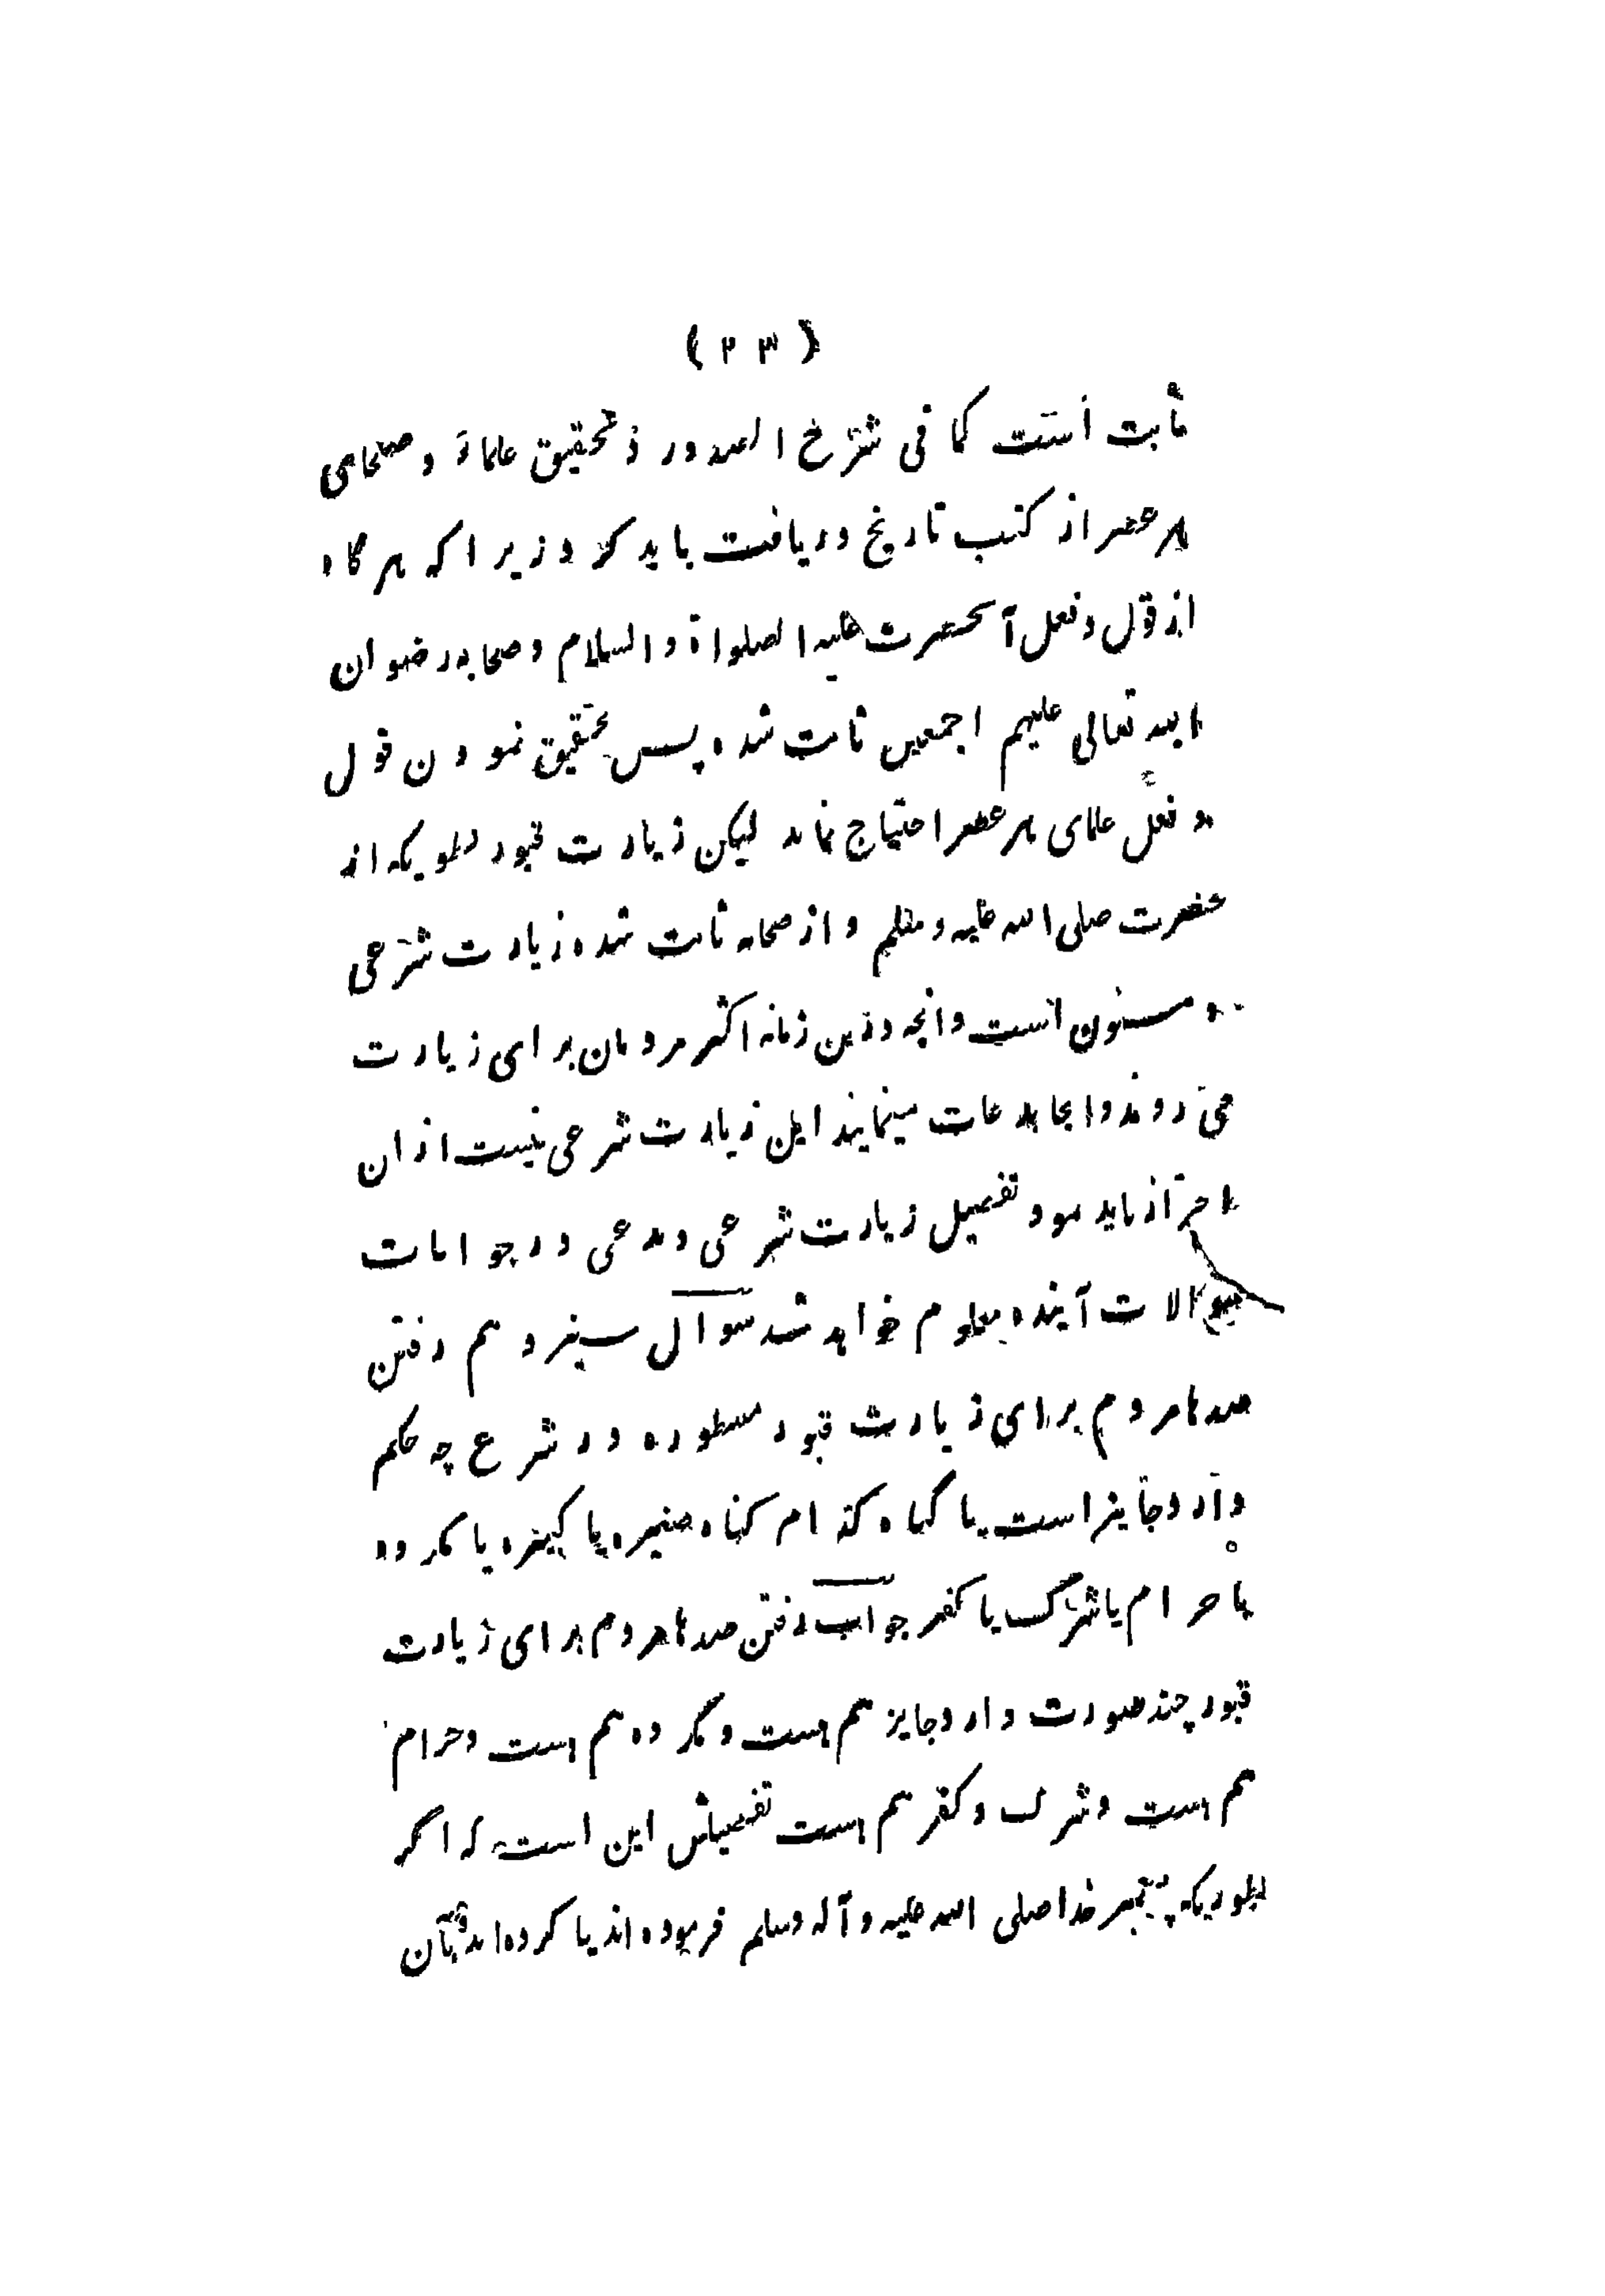 ( ۲۳ )
ثابت است کما فی شرح الصدور و تحقیق علماء و صلحای
هر عصر از کتب تاریخ دریافت باید کرد زیرا که هر گاه
از قول و فعل آنحضرت علیه الصلواة و السلام و صحابه رضوان
الله تعالی علیهم اجمعین ثابت شده پس تحقیق نمودن قول
و فعل علمای هر عصر احتیاج نماند لیکن زیارت قبور بطوریکه از
حضرت صلی الله علیه و سلم و از صحابه ثابت شده زیارت شرعی
و مسنون است و انچه درین زمانه اکثر مردمان برای زیارت
می روند و انجا بدعات مینمایند این زیارت شرعی نیست ازان
احتراز باید نمود و تفصیل زیارت شرعی و بدعی در جوابات
سوالات آینده معلوم خواهد شد سوال سیزدهم رفتن
صدها مردم برای زیارت قبور مسطوره در شرع چه حکم
دارد جایز است یا گناه کدام گناه صغیره یا کبیره یا مکروه
یا حرام یا شرک یا کفر جواب رفتن صدها مردم برای زیارت
قبور چند صورت دارد جایز هم هست و مکروه هم هست و حرام
هم هست و شرک و کفر هم هست تفصیلش این است که اگر
بطوریکه پیغمبر خدا صلی الله علیه و آله وسلم فرموده اند یا کرده اند بآن